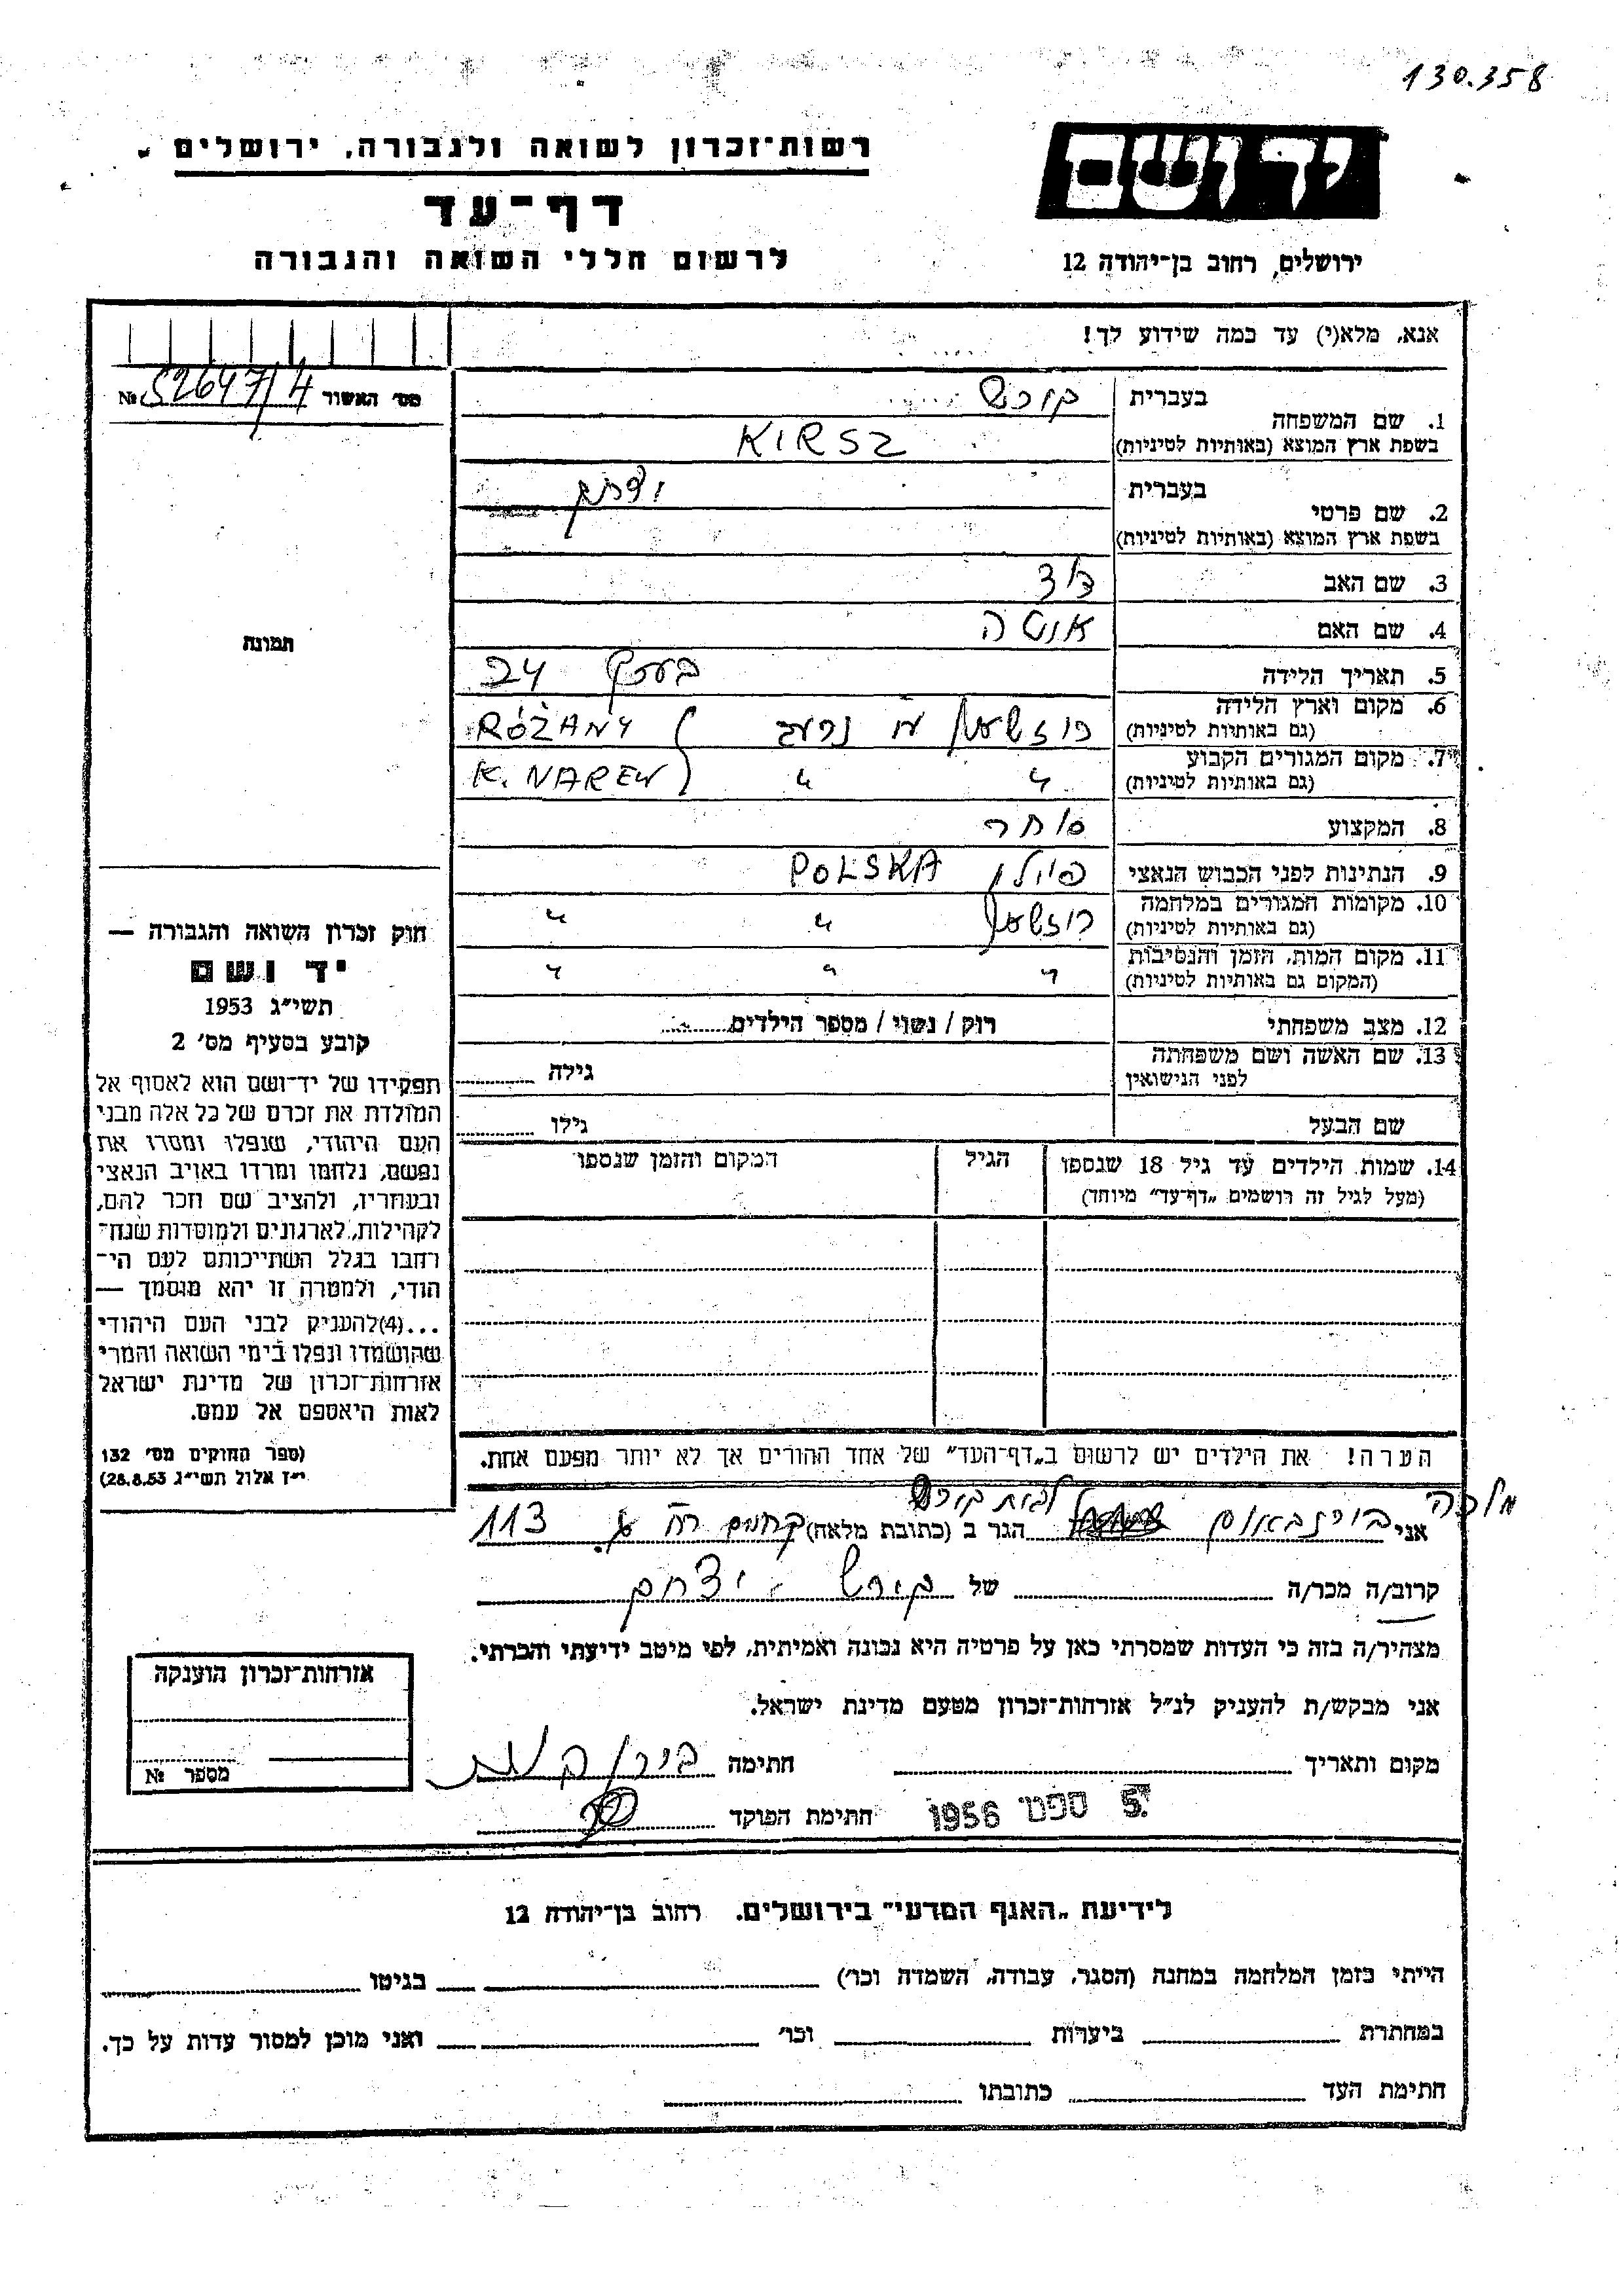 130.358
רשות־זכרון לשואה ולגבורה, ירושלים
יד ושם
דף־עד
לרשום חללי השואה והגבורה
ירושלים, רחוב בן־יהודה 12
אנא, מלא(י) עד כמה שידוע לך!
מס׳ האשור 52647/4 №
1. שם המשפחה
בעברית קירש
בשפת ארץ המוצא (באותיות לטיניות) KIRSZ
2. שם פרטי
בעברית יצחק
בשפת ארץ המוצא (באותיות לטיניות)
3. שם האב דוד
4. שם האם
5. תאריך הלידה בערך 24
6. מקום וארץ הלידה
(גם באותיות לטיניות) RÓŻANY
7. מקום המגורים הקבוע
(גם באותיות לטיניות) " " K. NAREW
8. המקצוע סוחר
9. הנתינות לפני הכבוש הנאצי פולין POLSKA
10. מקומות המגורים במלחמה
(גם באותיות לטיניות) " "
11. מקום המות, הזמן והנסיבות
(המקום גם באותיות לטיניות) " " "
12. מצב משפחתי רוק / נשוי / מספר הילדים
13. שם האשה ושם משפחתה
לפני הנישואין גילה
שם הבעל גילו
14. שמות הילדים עד גיל 18 שנספו הגיל המקום והזמן שנספו
(מעל לגיל זה רושמים „דף־עד״ מיוחד)
הערה! את הילדים יש לרשום ב„דף־העד״ של אחד ההורים אך לא יותר מפעם אחת.
תמונה
חוק זכרון השואה והגבורה —
יד ושם
תשי״ג 1953
קובע בסעיף מס׳ 2
תפקידו של יד־ושם הוא לאסוף אל
המולדת את זכרם של כל אלה מבני
העם היהודי, שנפלו ומסרו את
נפשם, נלחמו ומרדו באויב הנאצי
ובעוזריו, ולהציב שם וזכר להם,
לקהילות, לארגונים ולמוסדות שנח־
רבו בגלל השתייכותם לעם הי־
הודי, ולמטרה זו יהא מוסמך —
...(4)להעניק לבני העם היהודי
שהושמדו ונפלו בימי השואה והמרי
אזרחות־זכרון של מדינת ישראל
לאות היאספם אל עמם.
(ספר החוקים מס׳ 132
י״ז אלול תשי״ג 28.8.53)
מלכה לבית קירש
אני בירנבאום הגר ב (כתובת מלאה) 113
קרוב/ה מכר/ה של קירש יצחק
מצהיר/ה בזה כי העדות שמסרתי כאן על פרטיה היא נכונה ואמיתית, לפי מיטב ידיעתי והכרתי.
אני מבקש/ת להעניק לנ״ל אזרחות־זכרון מטעם מדינת ישראל.
מקום ותאריך חתימה
5. ספט׳ 1956 חתימת הפוקד
אזרחות־זכרון הוענקה
מספר №
לידיעת „האגף המדעי״ בירושלים. רחוב בן־יהודה 12
הייתי בזמן המלחמה במחנה (הסגר, עבודה, השמדה וכו׳) בגיטו
במחתרת ביערות וכו׳ ואני מוכן למסור עדות על כך.
חתימת העד כתובתו